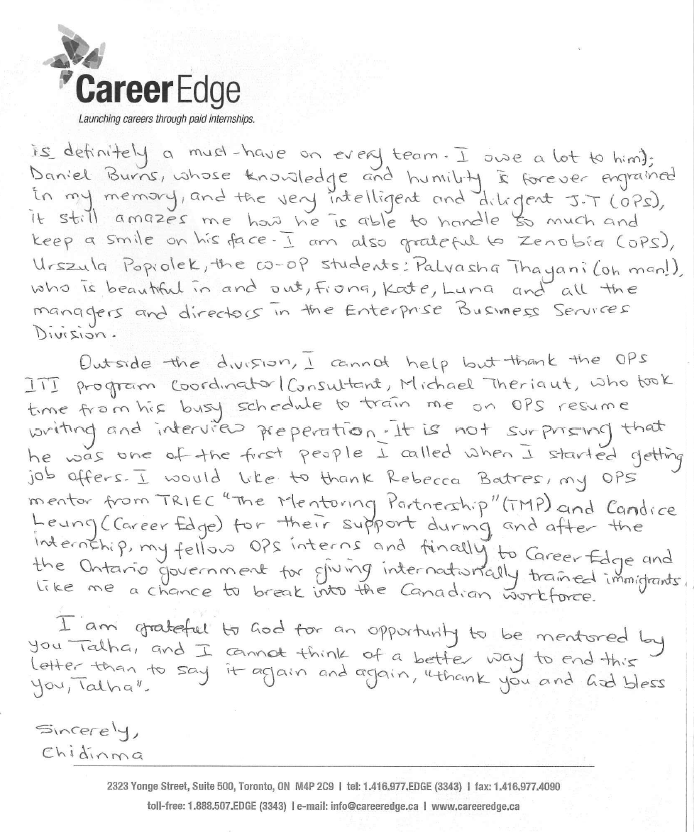 CareerEdge
Launching careers through paid internships.
is definitely a must-have on every team. I owe a lot to him);
Daniel Burns, whose knowledge and humility is forever engrained
in my memory, and the very intelligent and diligent J.T (OPS),
it still amazes me how he is able to handle so much and
keep a smile on his face. I am also grateful to Zenobia (OPS),
Urszula Popiolek, the co-op students: Palvasha Thayani (oh man!),
who is beautiful in and out, Fiona, Kate, Luna and all the
managers and directors in the Enterprise Business Services
Division.
Outside the division, I cannot help but thank the OPS
ITI program Coordinator/Consultant, Michael Theriaut, who took
time from his busy schedule to train me on OPS resume
writing and interview preperation. It is not surprising that
he was one of the first people I called when I started getting
job offers. I would like to thank Rebecca Batres, my OPS
mentor from TRIEC "The Mentoring Partnership" (TMP) and Candice
Leung (Career Edge) for their support during and after the
internship, my fellow OPS interns and finally to Career Edge and
the Ontario government for giving internationally trained immigrants,
like me a chance to break into the Canadian workforce.
I am grateful to God for an opportunity to be mentored by
you Talha, and I cannot think of a better way to end this
letter than to say it again and again, "thank you and God bless
you, Talha".
Sincerely,
Chidinma
2323 Yonge Street, Suite 500, Toronto, ON M4P 2C9 | tel: 1.416.977.EDGE (3343) | fax: 1.416.977.4090
toll-free: 1.888.507.EDGE (3343) | e-mail: info@careeredge.ca | www.careeredge.ca